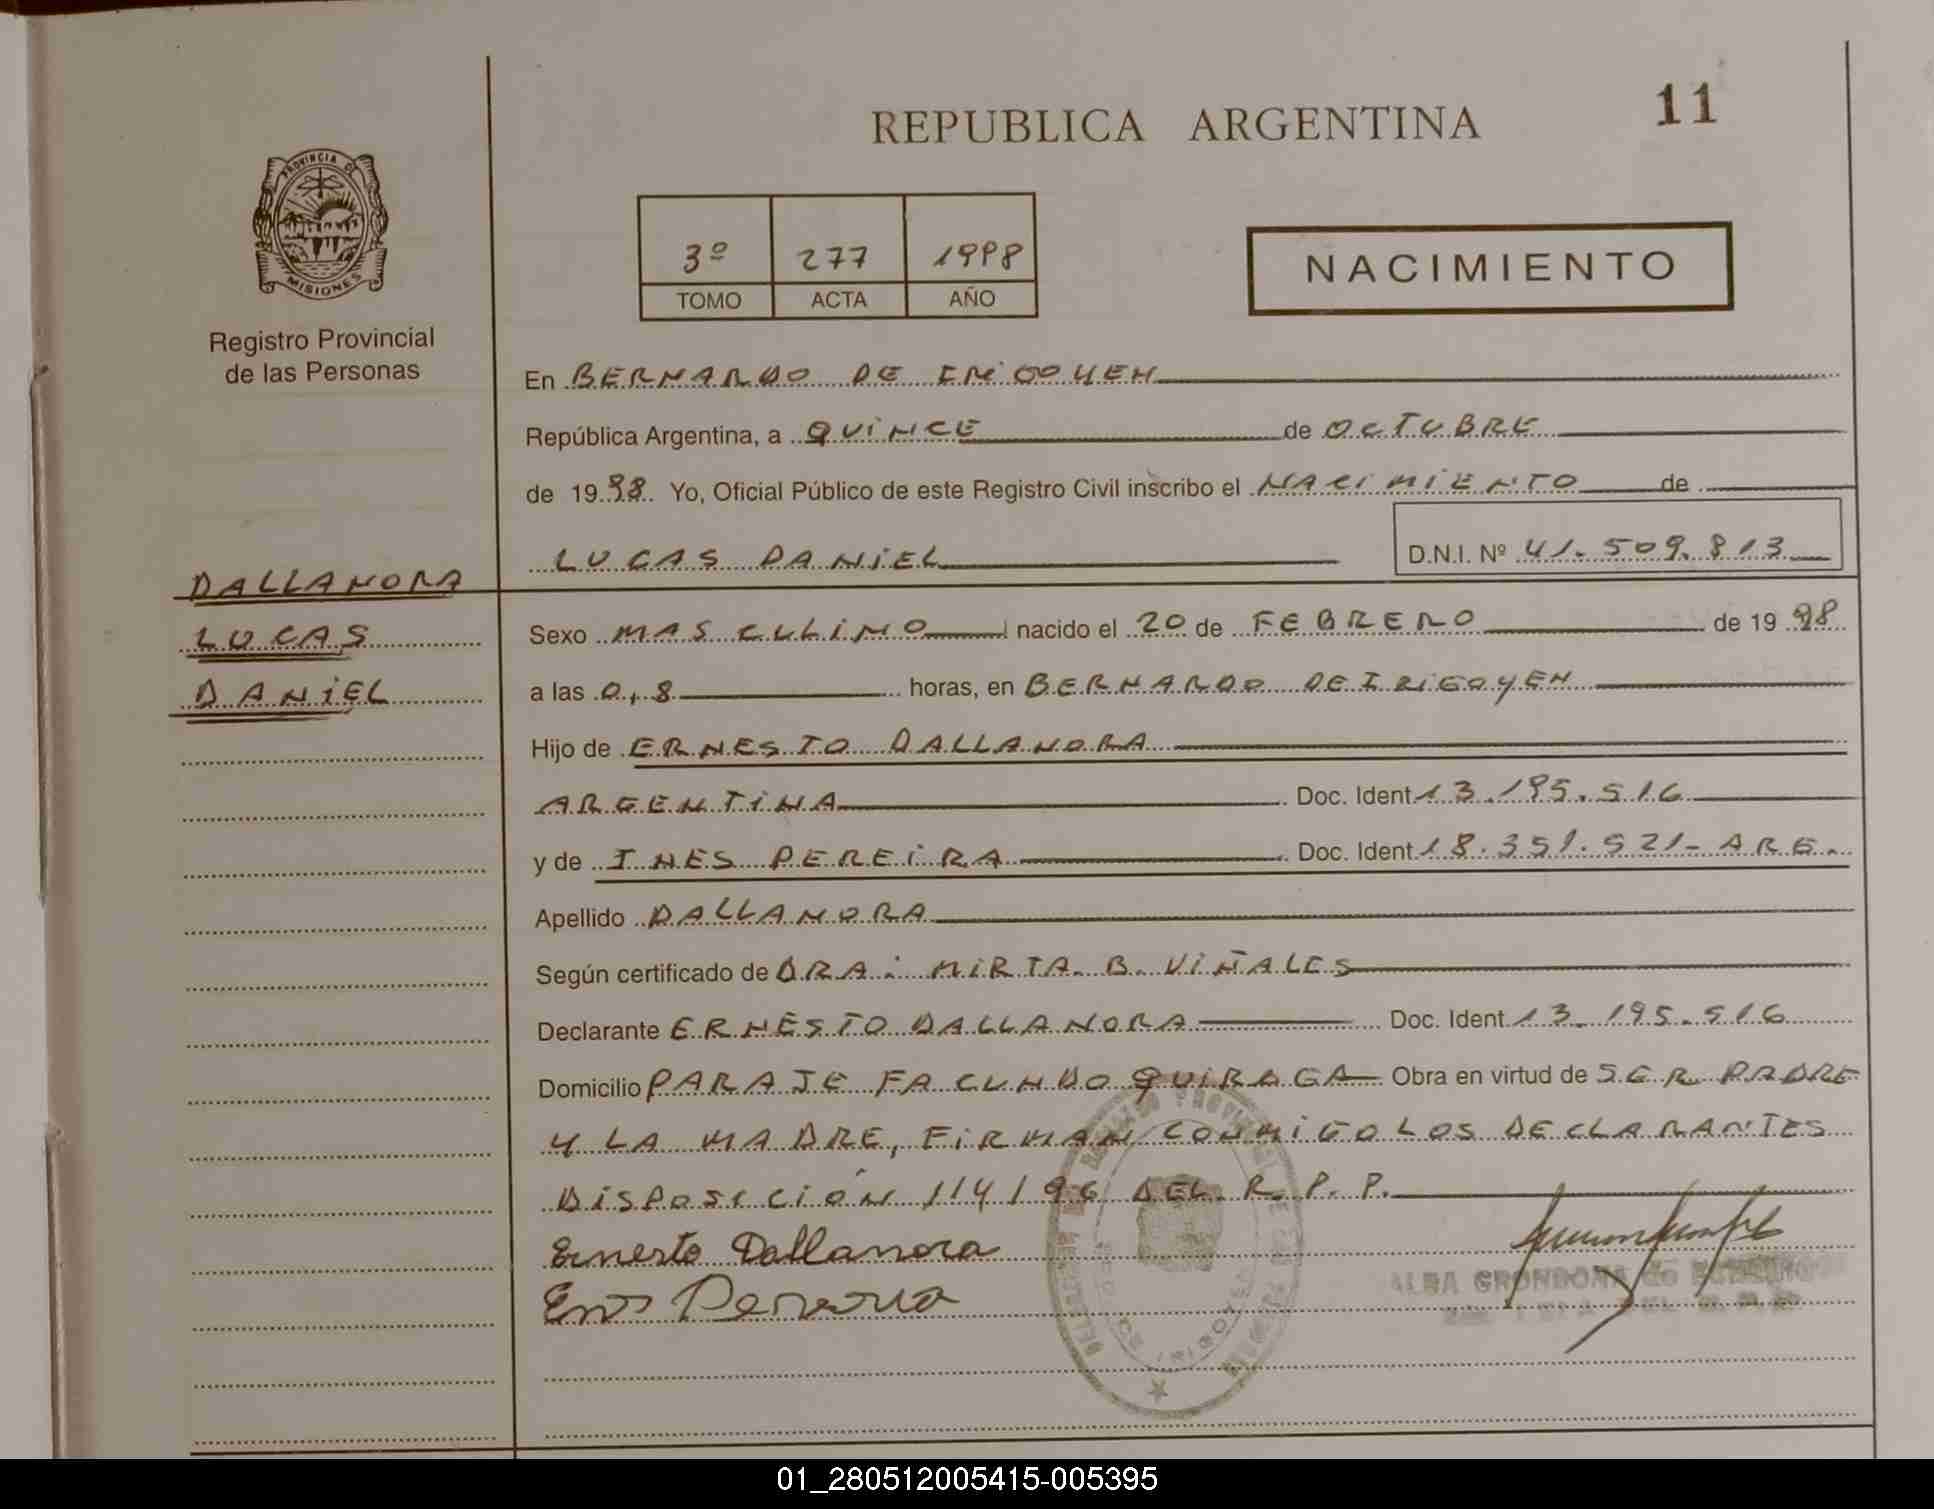 REPUBLICA ARGENTINA
11
PROVINCIA DE
MISIONES
Registro Provincial
de las Personas
3º 277 1998
TOMO ACTA AÑO
NACIMIENTO
En BERNARDO DE IRIGOYEN
República Argentina, a QUINCE de OCTUBRE
de 1998 Yo, Oficial Público de este Registro Civil inscribo el NACIMIENTO de
LUCAS DANIEL D.N.I. Nº 41.509.813
DALLANORA
LUCAS
DANIEL
Sexo MASCULINO nacido el 20 de FEBRERO de 1998
a las 0,8 horas, en BERNARDO DE IRIGOYEN
Hijo de ERNESTO DALLANORA
ARGENTINA Doc. Ident 13.195.516
y de INES PEREIRA Doc. Ident 18.351.521- ARG.
Apellido DALLANORA
Según certificado de DRA: MIRTA B. VIÑALES
Declarante ERNESTO DALLANORA Doc. Ident 13.195.516
Domicilio PARAJE FACUNDO QUIROGA Obra en virtud de SER PADRE
Y LA MADRE, FIRMAN CONMIGO LOS DECLARANTES
DISPOSICIÓN 114/96 DEL R.P.P.
Ernesto Dallanora
ALBA GRONDONA de
01_280512005415-005395